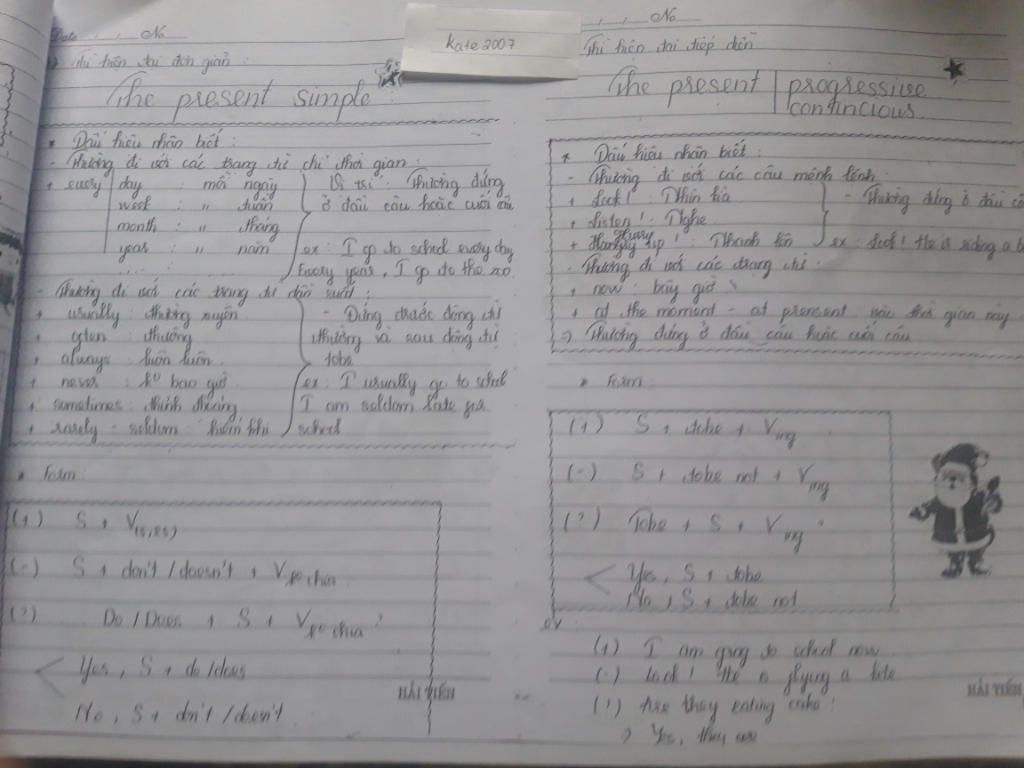 kate 2007
Date . , , No
Thì hiện tại đơn giản:
The present simple
* Dấu hiệu nhân biết :
- Thường đi với các trang từ chỉ thời gian :
+ every day : mỗi ngày
week : " tuần
month : " tháng
year : " năm
Vị trí : Thường đứng
ở đầu câu hoặc cuối câu
ex : I go to school every day
Every year, I go to the zoo.
- Thường đi với các trang từ tần suất :
+ usually : thường xuyên
+ often : thường
+ always : luôn luôn
+ never : ko bao giờ
+ sometimes : thỉnh thoảng
+ rarely - seldom : hiếm khi
- Đứng trước động từ
thường và sau động từ
tobe
ex : I usually go to school
I am seldom late for
school
* Form :
(+) S + V(s, es)
(-) S + don't / doesn't + Vko chia
(?) Do / Does + S + Vko chia ?
Yes, S + do/does
No, S + don't / doesn't
HẢI TIẾN
, , No
Thì hiện tại tiếp diễn
The present progressive
continuous
* Dấu hiệu nhân biết :
- Thường đi với các câu mệnh lệnh :
+ Look! : Nhìn kìa
+ Listen! : Nghe
+ Hurry up! : Nhanh lên
- Thường đứng ở đầu câ
ex : Look! He is riding a b
- Thường đi với các trang từ :
+ now : bây giờ
+ at the moment - at present : vào thời gian này
=> Thường đứng ở đầu câu hoặc cuối câu
* Form :
(+) S + tobe + Ving
(-) S + tobe not + Ving
(?) Tobe + S + Ving ?
Yes, S + tobe
No, S + tobe not
ex :
(+) I am going to school now
(-) Look! He is flying a kite
(?) Are they eating cake?
Yes, they are
HẢI TIẾN